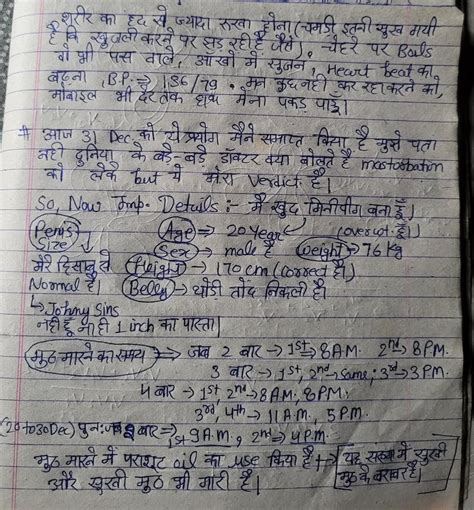 शरीर का हद से ज्यादा रूखा होना (चमड़ी इतनी सूख गयी
है कि खुजली करने पर झड़ रही है जैसे)। चेहरे पर Boils
वो भी पस वाले, आखों में सूजन, Heart beat का
बढ़ना, B.P. => 136/79 . मन कुछ नहीं कर रहा करने को,
मोबाइल भी देर तक हाथ में ना पकड़ पाऊँ।
# आज 31 Dec. को ये प्रयोग मैंने समाप्त किया है मुझे पता
नही दुनिया के बड़े-बड़े डॉक्टर क्या बोलते है mastorbation
को लेके but ये मेरा verdict है।
So, Now Imp. Details :- मैं खुद मिनीपीग बना हूँ।
Penis Size
Age => 20 Year (over wt हूँ)
Sex -> male है
Weight -> 76 kg
मेरे हिसाब से Normal है।
Height -> 170 cm (correct है)
Belly -> थोड़ी तोंद निकली है।
↳ Johny Sins
नहीं हूँ ना ही 1 inch का पास्ता।
मुठ मारने का समय => जब 2 बार -> 1st -> 8 A.M. 2nd -> 8 P.M.
3 बार -> 1st, 2nd -> same, 3rd -> 3 P.M.
4 बार -> 1st, 2nd -> 8 A.M., 8 P.M.
3rd, 4th -> 11 A.M., 5 P.M.
(20 to 30 Dec) पुनः जब 2 बार => 1st 9 A.M., 2nd -> 4 P.M.
मुठ मारने में पैराशूट oil का use किया है
और सूखी मुठ भी मारी है।
-> यह सख्या में सूखी
मुठ के बराबर है।